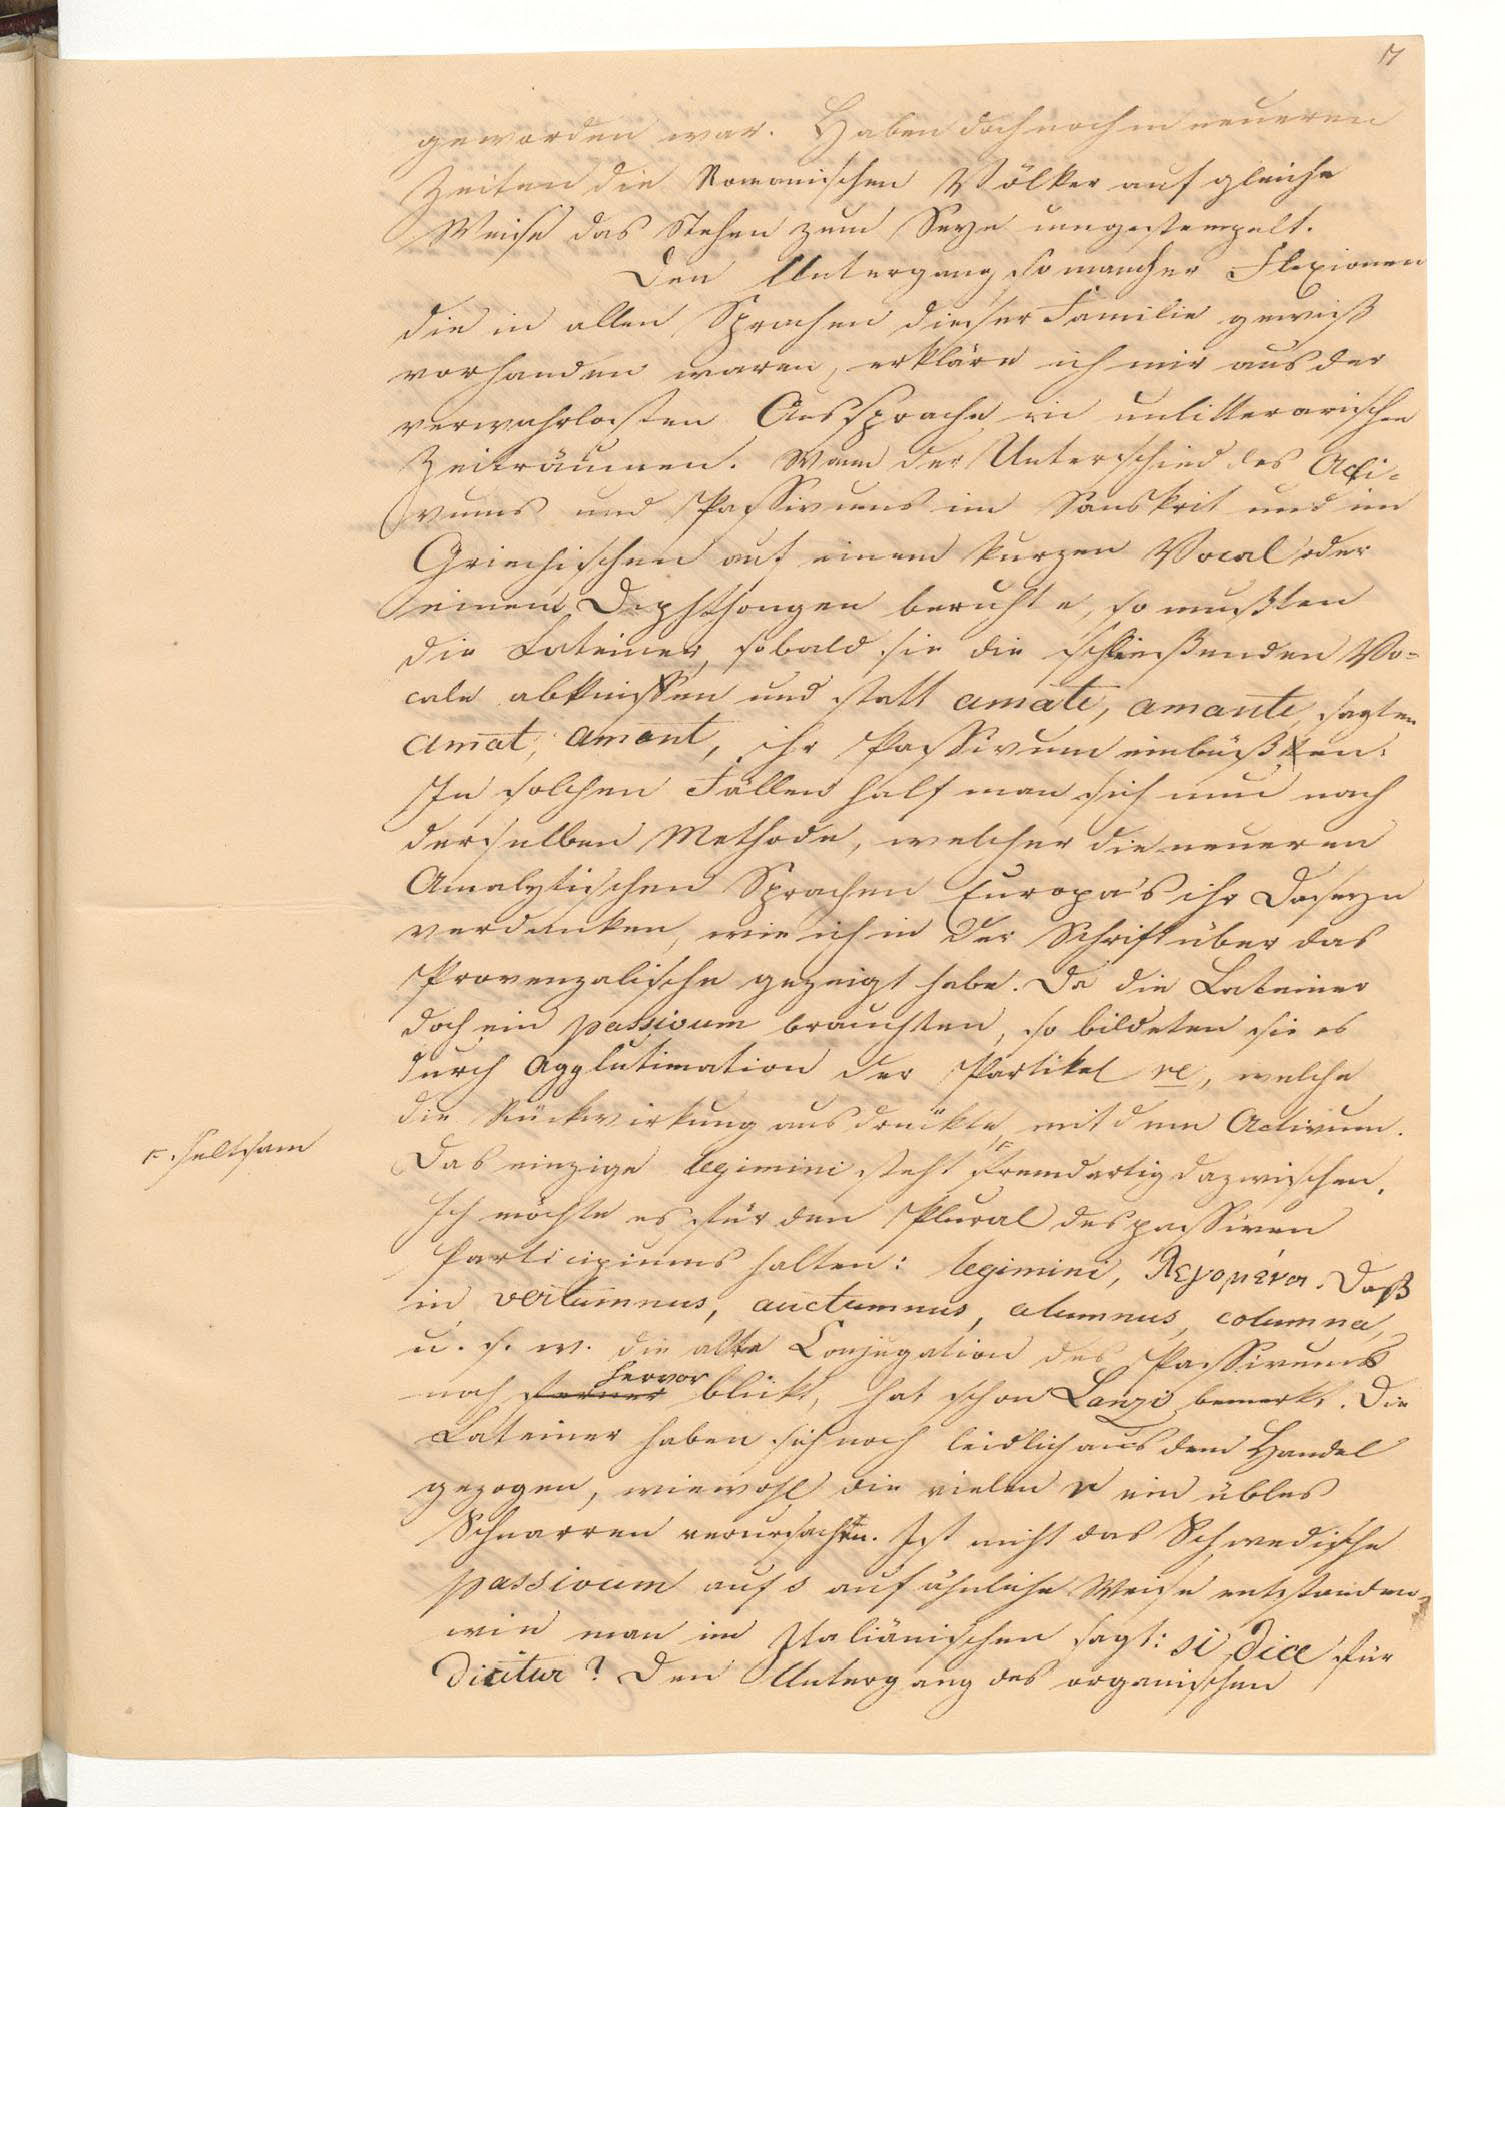 17
geworden war. Haben doch noch in neueren
Zeiten die Romanischen Völker auf gleiche
Weise das Stehen zum Seyn umgestempelt.
Den Untergang so mancher Flexionen
die in allen Sprachen dieser Familie gewiß
vorhanden waren, erkläre ich mir aus der
verwahrlosten Aussprache in unlitterarischen
Zeiträumen. Wenn der Unterschied des Acti-
vums und Passivums im Sanskrit und im
Griechischen auf einem kurzen Vocal oder
einem Diphthongen beruhte, so mußten
die Lateiner, sobald sie die schließenden Vo-
cale abkniffen und statt amati, amanti, sagten
amat, amant, ihr Passivum einbüßen.
In solchen Fällen half man sich nun nach
derselben Methode, welcher die neueren
Analytischen Sprachen Europa's ihr Daseyn
verdanken, wie ich in der Schrift über das
Provenzalische gezeigt habe. Da die Lateiner
doch ein passivum brauchten, so bildeten sie es
durch Agglutination der Partikel re, welche
die Rückwirkung ausdrückte, mit dem Activum.
Das einzige legimini steht ⌜ fremdartig dazwischen.
⌜ seltsam
Ich möchte es für den Plural des passiven
Participiums halten: legimini, λεγομένοι. Daß
in vertumnus, auctumnus, alumnus, columna,
u. s. w. die alte Conjugation des Passivums
noch hervor blickt, hat schon Lanzi bemerkt. Die
Lateiner haben sich noch leidlich aus dem Handel
gezogen, wiewohl die vielen r ein übles
Schnarren verursachten. Ist nicht das Schwedische
passivum auf s auf ähnliche Weise entstanden,
wie man im Italiänischen sagt: si dice für
dicitur? Den Untergang des organischen